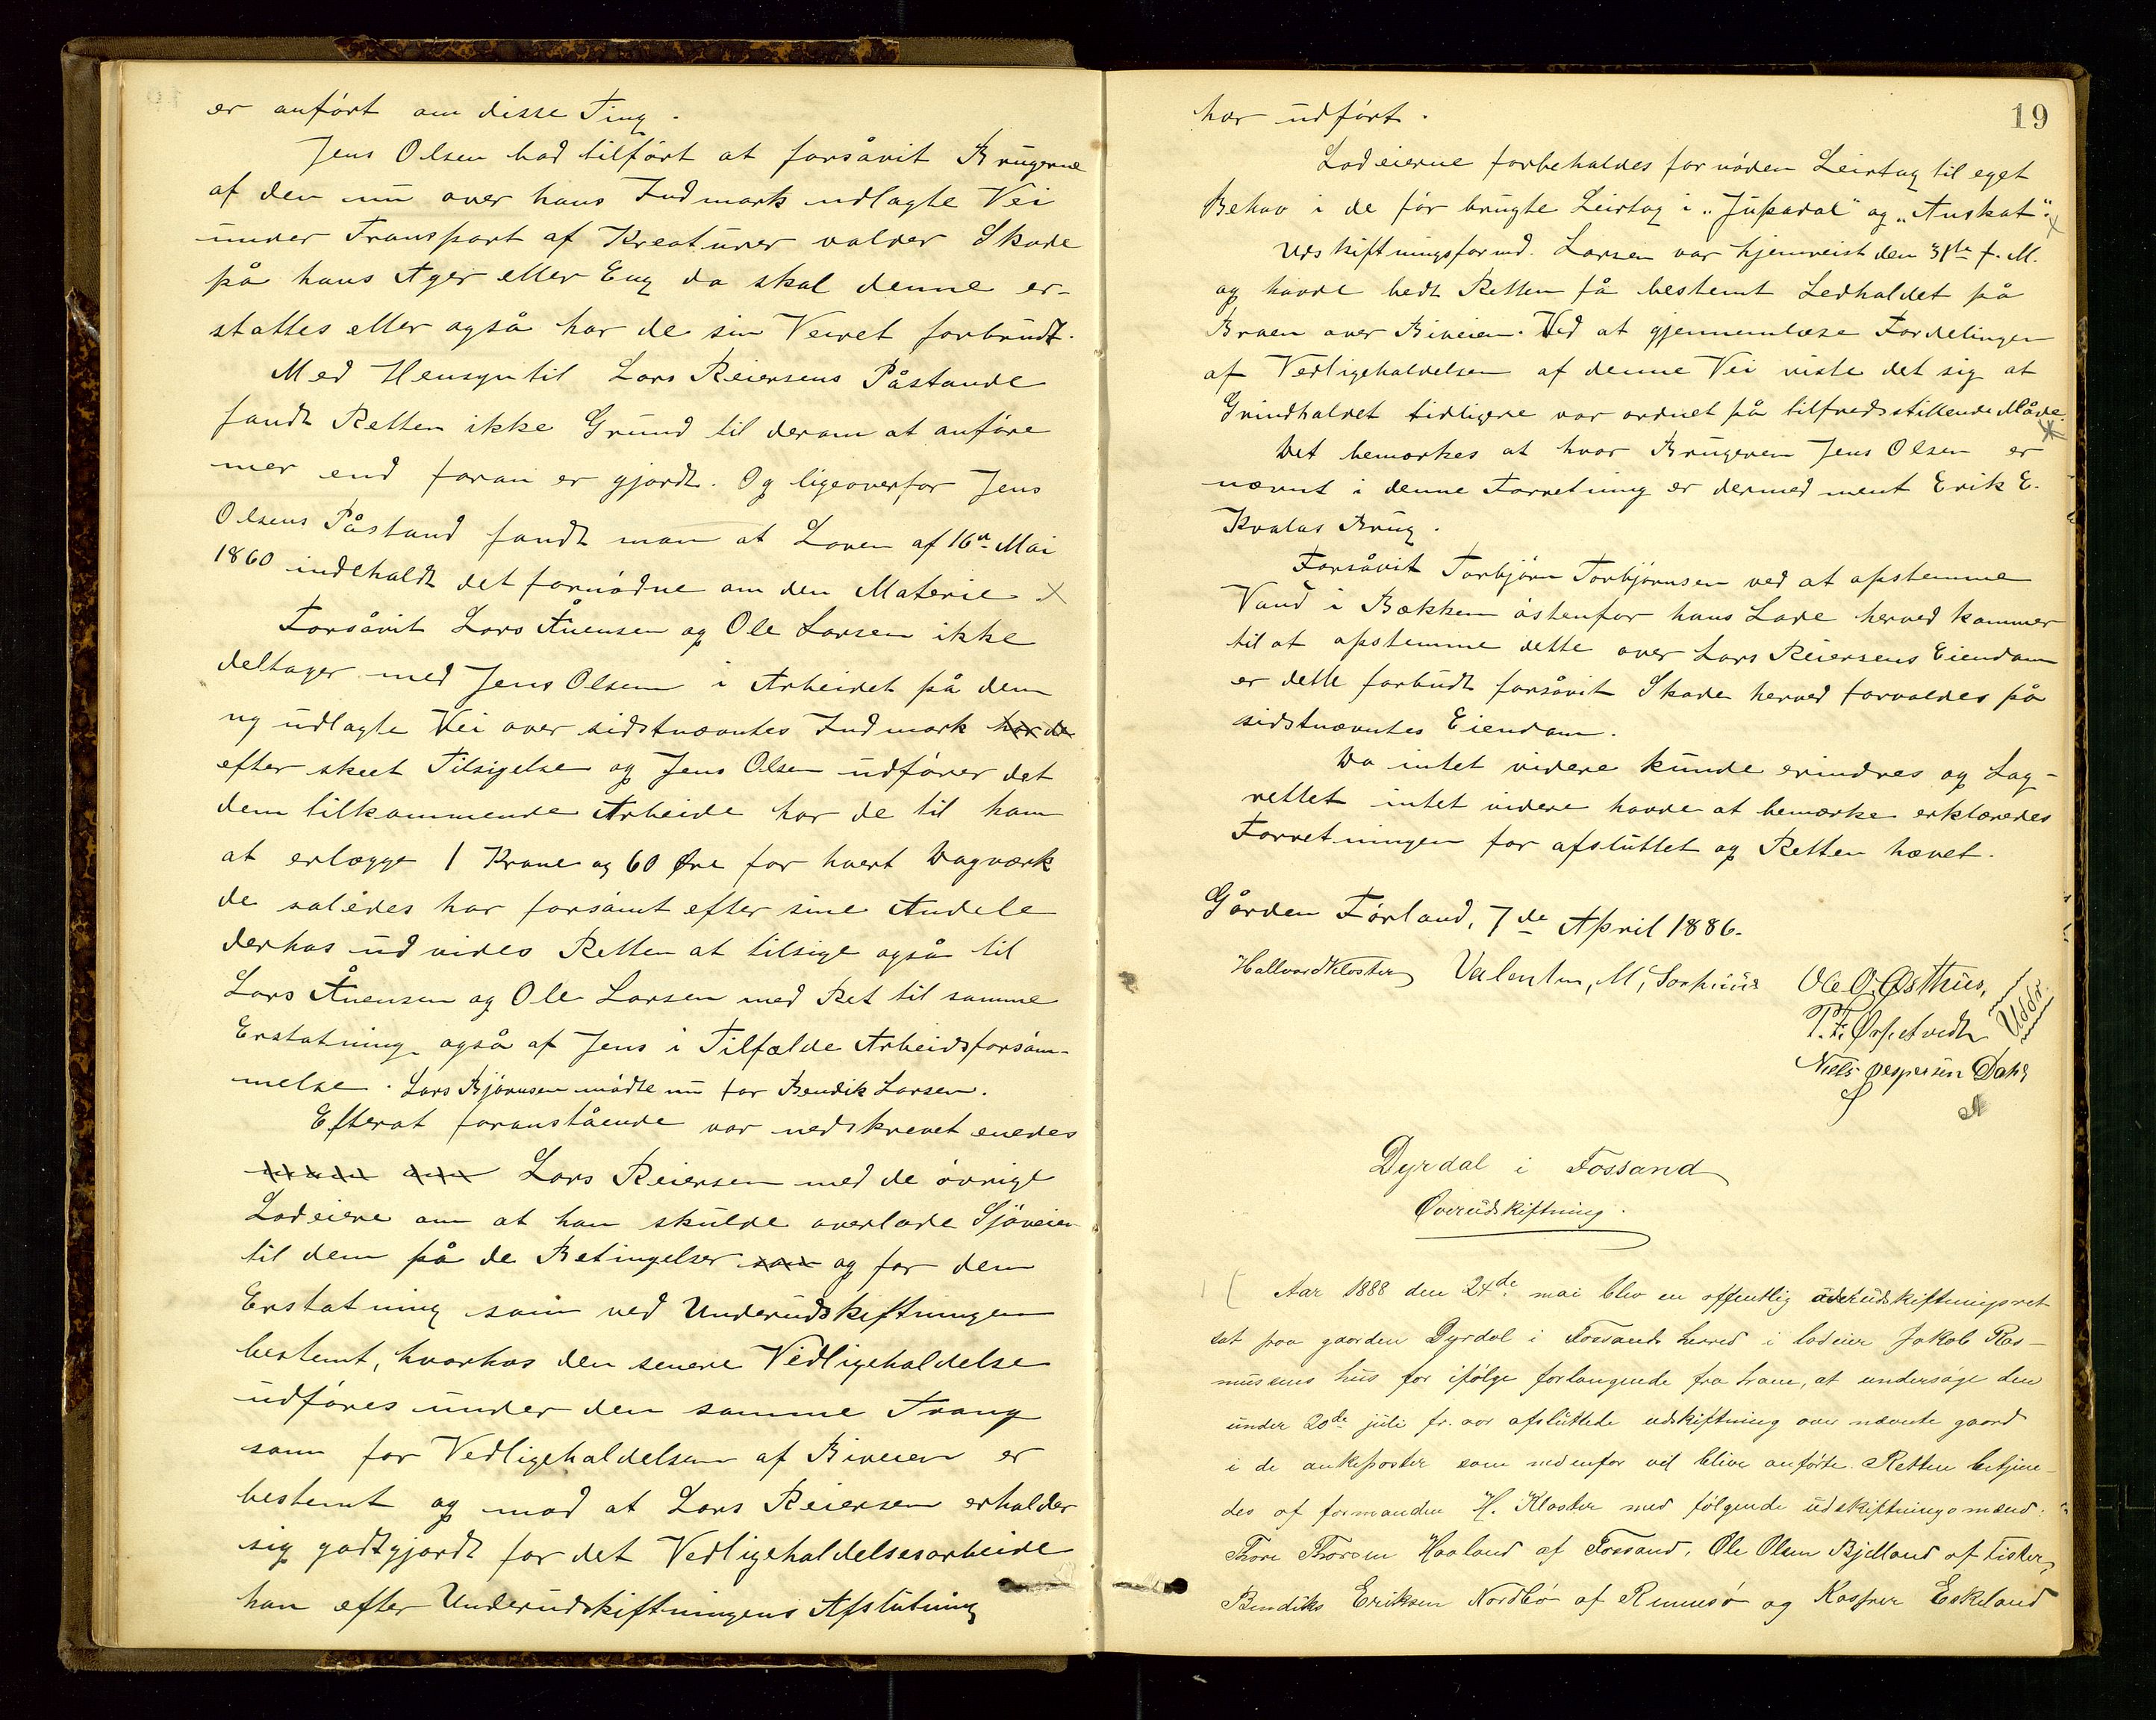 er anført om disse Ting.
Jens Olsen had tilført at forsåvit Brugerne
af den nu over hans Indmark udlagte Vei
under Transport af Kreaturer volder Skade
på hans Ager eller Eng da skal denne er-
stattes eller også har de sin Veiret forbrudt.
Med Hensyn til Lars Reiersens Påstande
fandt Retten ikke Grund til derom at anføre
mer end foran er gjordt. Og ligeoverfor Jens
Olsens Påstand fandt man at Loven af 16de Mai
1860 indeholdt det fornødne om den Materie x
Forsåvit Lars Åuensen og Ole Larsen ikke
deltager med Jens Olsen i Arbeidet på den
ny udlagte Vei over sidstnævntes Indmark har de
efter skeet Tilsigelse og Jens Olsen udfører det
dem tilkommende Arbeide har de til ham
at erlægge 1 Krone og 60 Øre for hvert Dagværk
de således har forsømt efter sine Andele
derhos udvides Retten at tilsige også til
Lars Åuensen og Ole Larsen med Ret til samme
Erstatning også af Jens i Tilfælde Arbeidsforsøm-
melse. Lars Bjørnsen mødte nu for Bendik Larsen.
Efterat foranstående var nedskrevet enedes
Lars Reiersen med de øvrige
Lodeiere om at han skulde overlade Sjøveien
til dem på de Betingelser som og for den
Erstatning som ved Underudskiftningen
bestemt, hvorhos den senere Vedligeholdelse
udføres under den samme Tvang
som for Vedligeholdelsen af Biveien er
bestemt og mod at Lars Reiersen erholder
sig godtgjordt for det Vedligeholdelsesarbeide
han efter Underudskiftningens Afslutning
19
har udført.
Lodeierne forbeholdes fornøden Leirtag til eget
Behov i de før brugte Leirtag i „Juparal" og „Auskat". x
Udskiftningsformd. Larsen var hjemreist den 31te f. M.
og havde bedt Retten få bestemt Ledholdet på
Broen over Biveien. Ved at gjennemlæse Fordelingen
af Vedligeholdelsen af denne Vei viste det sig at
Grindholdet tidligere var ordnet på tilfredsstillende Måde.
Det bemærkes at hvor Brugeren Jens Olsen er
nævnt i denne Forretning er dermed ment Erik E.
Kvalas Brug.
Forsåvit Torbjørn Torbjørnsen ved at opstemme
Vand i Bækken østenfor hans Lade herved kommer
til at opstemme dette over Lars Reiersens Eiendom
er dette forbudt forsåvit Skade herved forvoldes på
sidstnævntes Eiendom.
Da intet videre kunde erindres og Lag-
rettet intet videre havde at bemærke erklæredes
Forretningen for afsluttet og Retten hævet.
Gården Førland, 7de April 1886.
Hallvard Kloster Valentin, M, Ole O. Østhus,
T. F. Uddr.
Niels Jespersen Dahl
Dyrdal i Fossand
Overudskiftning.
Aar 1888 den 24de mai blev en offentlig overudskiftningsret
sat paa gaarden Dyrdal i Fossands herred i lodeier Jakob Ras-
musens hus for ifølge forlangende fra ham, at undersøge den
under 20de juli fr. aar afsluttede udskiftning over nævnte gaard
i de ankeposter som nedenfor vil blive anførte. Retten betjen-
des af formanden H. Kloster med følgende udskiftningsmænd:
Thore Thorsen Haaland af Fossand, Ole Olsen Bjelland af Fister,
Bendiks Eriksen Nordbø af Rennesø og Kasper Eskeland